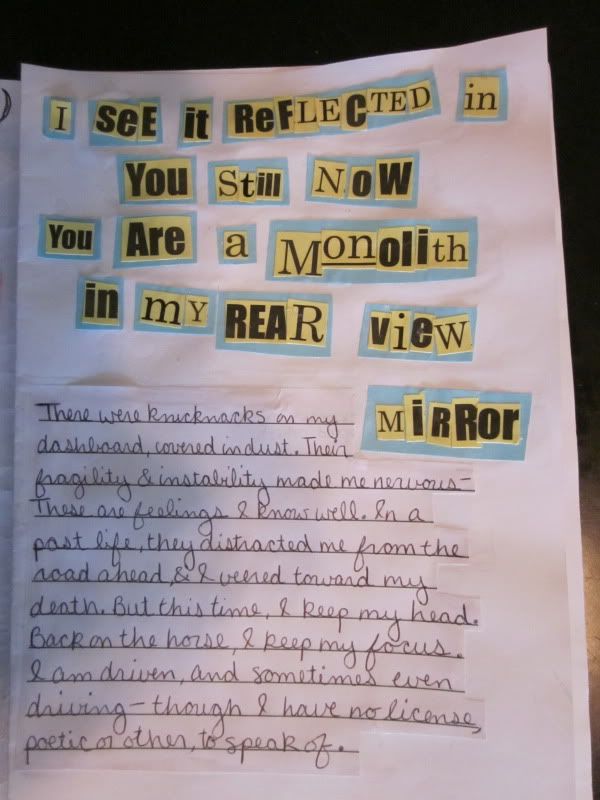 I SeE it ReFLECTED in
You Still NoW
You Are a Monolith
in mY REAR vieW
MiRRor
There were knicknacks on my
dashboard, covered in dust. Their
fragility & instability made me nervous-
These are feelings I know well. In a
past life, they distracted me from the
road ahead, & I veered toward my
death. But this time, I keep my head.
Back on the horse, I keep my focus.
I am driven, and sometimes even
driving - though I have no license,
poetic or other, to speak of.